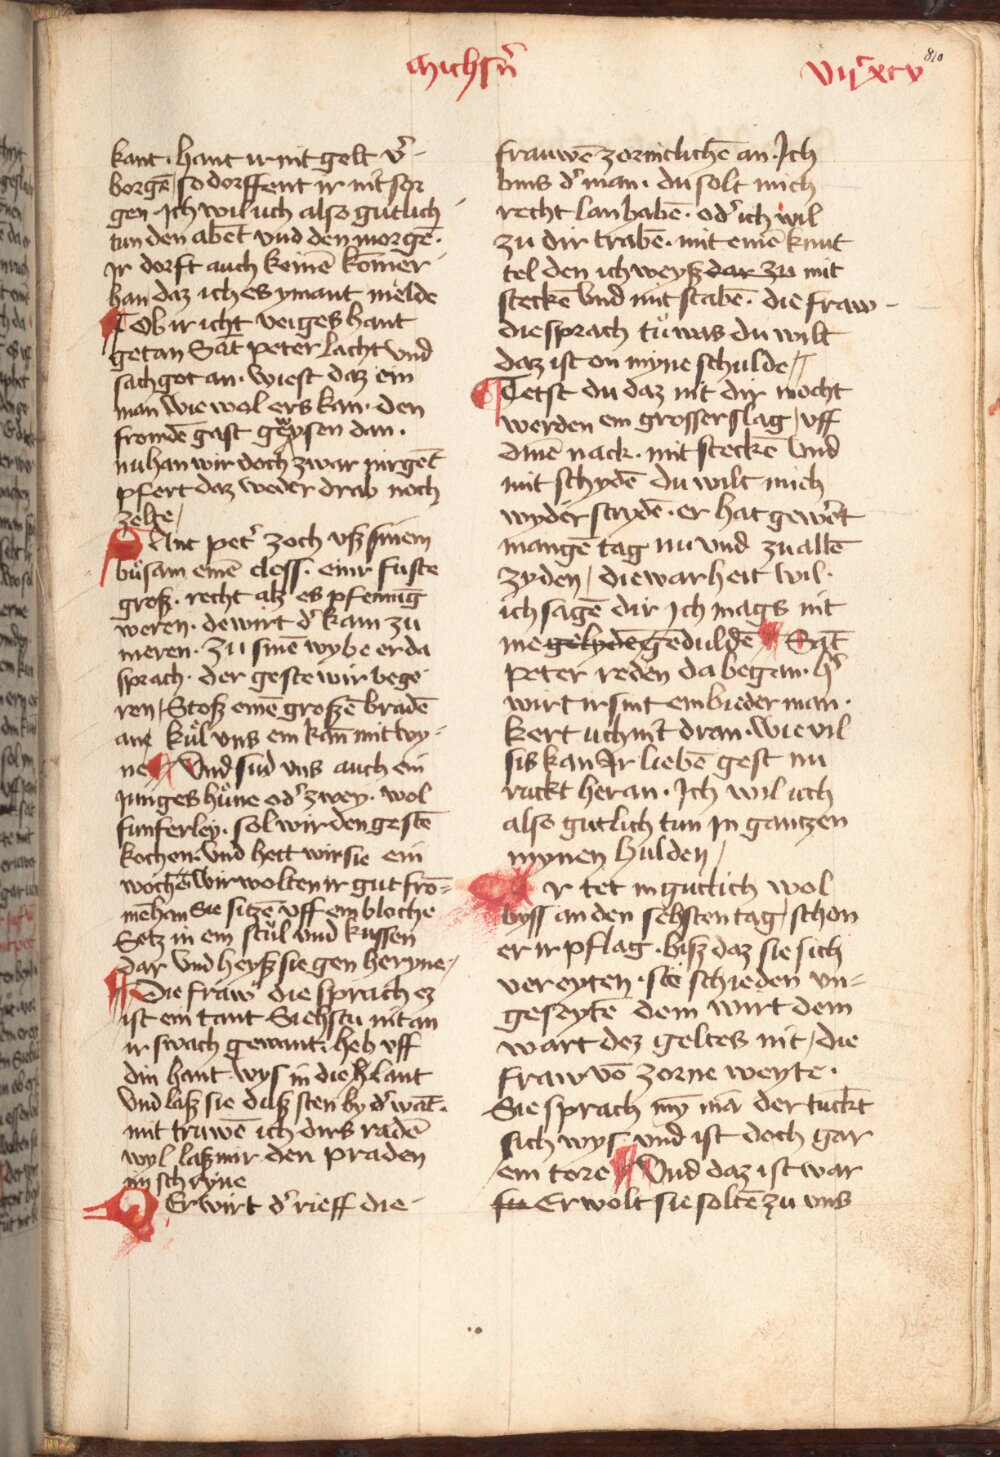 michsñ
vijcxcv
810
kant · hant ir nit gelt v̾ -
borgē / so dorffent ir nit sor
gen · Ich wil uch also gutlich
tun den abēt vnd den morgē ·
Ir dorft auch keinē kom̄er
han daz ich es ymant melde
Tob ir icht veiges hant
getan Sāt peter lacht vnd
sach got an · wiest daz ein
man wie wol ers kan · den
fromdē gast gewysen dan ·
nu han wir doch zwar nirgēt
pfert daz weder drab noch
zelte /
Ant pet̾ zoch vsz sinem
bůsam einē closs · einr fuste
grosz · recht alz es pfennig
weren · de wirt d̾ kam zu
meren · zu sinē wybe er da
sprach · der geste wir bege
ren / Stosz einē groszē bradē
ane kůl vns ein kan̄ mit wy -
ne Vnd sud vns auch ein
junges hůne od̾ zwey · wol
funferley · sol wir den gestē
kochen · vnd hett wir sie ein
wochē wir wolten ir gut fro =
mē han Sie sitzē vff ein bloche
Setz in ein stůl vnd kussen
dar vnd heysz sie gen heryne /
Die fraw die sprach ez
ist ein tant Siehstu nit an
ir swach gewant · heb vff
din hant wys in die hant
vnd lasz sie dusz sten by d̾ wāt ·
mit truwē ich dirs radē
wyl lasz mir den praden
im schryne
Er wirt d̾ rieff die -
frauwē zorniclichē an · Ich
bins d̾ man · du solt mich
recht lan habē · od̾ ich wil
zu dir trabē · mit einē knut
tel den ich weysz dar zu mit
steckē vnd mit stabē · die fraw -
die sprach tů was du wilt
daz ist on myne schulde /
Tetst du daz nit dir mocht
werden ein grosser slag / vff
dinē nack · mit steckē vnd
mit schydē du wilt mich
wyder strydē · er hat gew̾et
mangē tag nu vnd zu allē
zyden / die warheit wil ·
ich sagē dir Ich mags nit
me gelydē geduldē Sāt
peter reden da began · h̾
wirt ir sint ein bieder man ·
kert uch nit dran · wie vil
sis kan Ir liebē gest nu
ruckt heran · Ich wil uch
also gutlich tun In gantzen
mynen hulden /
Er tet in gutlich wol
byss an den sehsten tag / schon
er ir pflag · bisz daz sie sich
vereyten · sie schieden vn =
geseytē dem wirt dem
wart dez geltes nit / die
fraw vō zorne weyte ·
Sie sprach mȳ mā der tuckt
sich wys · vnd ist doch gar
ein tore Vnd daz ist war
fu Er wolt sie soltē zu vns